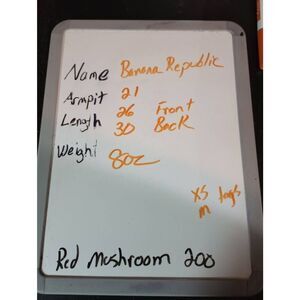 Name Banana Republic
Armpit 21
Length 26 Front
30 Back
Weight 8oz
XS tags
m
Red Mushroom 200